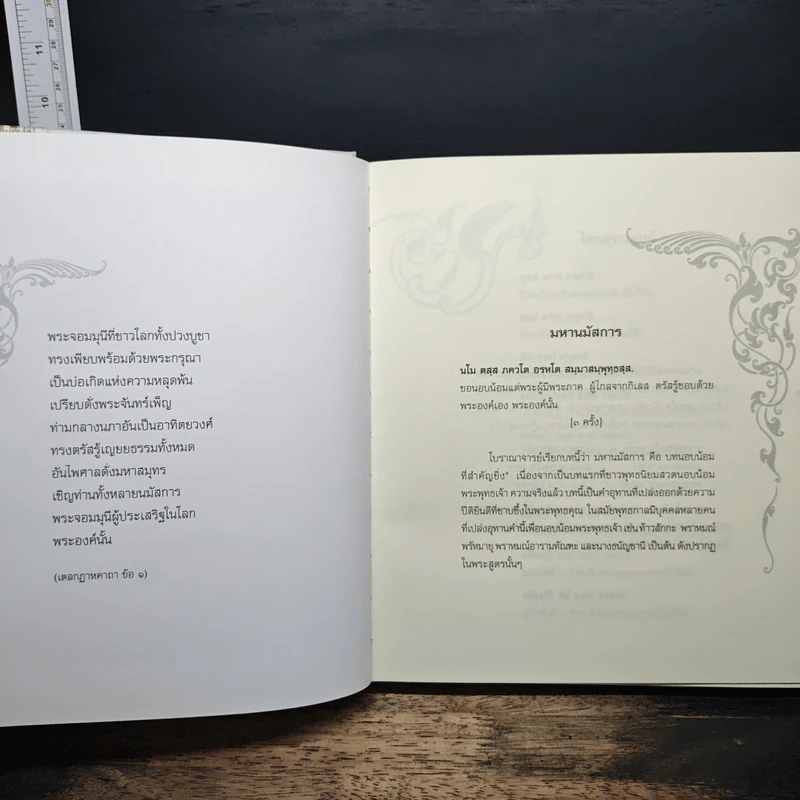 11
10
พระจอมมุนีที่ชาวโลกทั้งปวงบูชา
ทรงเพียบพร้อมด้วยพระกรุณา
เป็นบ่อเกิดแห่งความหลุดพ้น
เปรียบดั่งพระจันทร์เพ็ญ
ท่ามกลางนภาอันเป็นอาทิตยวงศ์
ทรงตรัสรู้เญยยธรรมทั้งหมด
อันไพศาลดั่งมหาสมุทร
เชิญท่านทั้งหลายนมัสการ
พระจอมมุนีผู้ประเสริฐในโลก
พระองค์นั้น
(เตลกฏาหคาถา ข้อ ๑)
มหานมัสการ
นโม ตสฺส ภควโต อรหโต สมฺมาสมฺพุทฺธสฺส.
ขอนอบน้อมแด่พระผู้มีพระภาค ผู้ไกลจากกิเลส ตรัสรู้ชอบด้วย
พระองค์เอง พระองค์นั้น
[๓ ครั้ง]
โบราณาจารย์เรียกบทนี้ว่า มหานมัสการ คือ บทนอบน้อม
ที่สำคัญยิ่ง* เนื่องจากเป็นบทแรกที่ชาวพุทธนิยมสวดนอบน้อม
พระพุทธเจ้า ความจริงแล้ว บทนี้เป็นคำอุทานที่เปล่งออกด้วยความ
ปีติยินดีที่ซาบซึ้งในพระพุทธคุณ ในสมัยพุทธกาลมีบุคคลหลายคน
ที่เปล่งอุทานคำนี้เพื่อนอบน้อมพระพุทธเจ้า เช่น ท้าวสักกะ พราหมณ์
พรัหมายุ พราหมณ์อารามทัณฑะ และนางธนัญชานี เป็นต้น ดังปรากฏ
ในพระสูตรนั้นๆ